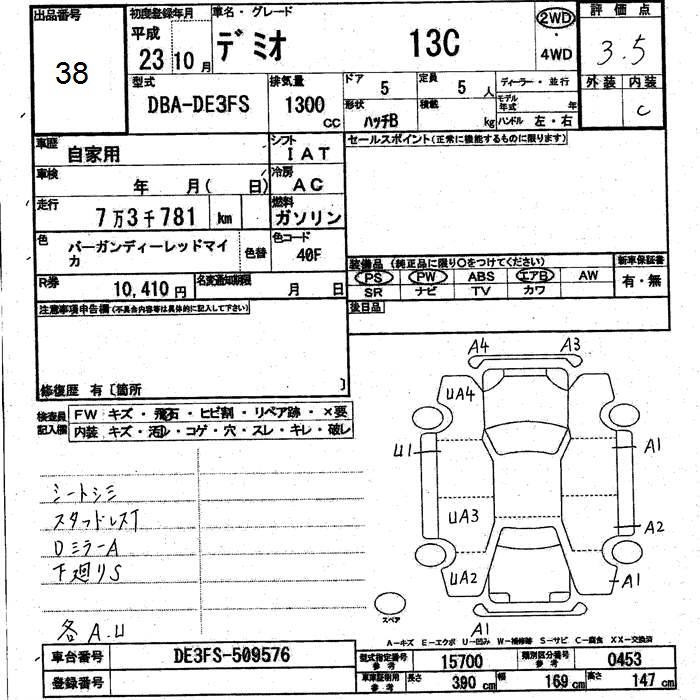 出品番号 38
初度登録年月 平成 23年 10月
車名・グレード デミオ 13C
2WD ・ 4WD
評価点 3.5
外装 内装 C
型式 DBA-DE3FS
排気量 1300 CC
ドア 5 定員 5人 ディーラー・並行
形状 ハッチB 積載 kg モデル年式 年
ハンドル 左・右
車歴 自家用 シフト IAT
セールスポイント(正常に機能するものに限ります)
車検 年 月( 日) 冷房 AC
走行 7万3千781 km 燃料 ガソリン
色 バーガンディーレッドマイカ 色替 色コード 40F
R券 10,410円 名変通知期限 月 日
装備品(純正品に限り○をつけてください) 新車保証書
PS PW ABS エアB AW 有・無
SR ナビ TV カワ
後日品
注意事項申告欄(不具合内容等は具体的に記入して下さい)
修復歴 有〔箇所 〕
検査員記入欄
FW キズ・飛石・ヒビ割・リペア跡・×要
内装 キズ・汚レ・コゲ・穴・スレ・キレ・破レ
シートシミ
スタッドレスT
DミラーA
下廻りS
各A.U
A4 A3
UA4
U1 A1
UA3 A2
UA2 A1
A1
スペア
A-キズ E-エクボ U-凹み W-補修跡 S-サビ C-腐食 XX-交換済
車台番号 DE3FS-509576
型式指定番号 参考 15700 類別区分番号 参考 0453
登録番号
車庫証明用 参考 長さ 390 cm 幅 169 cm 高さ 147 cm